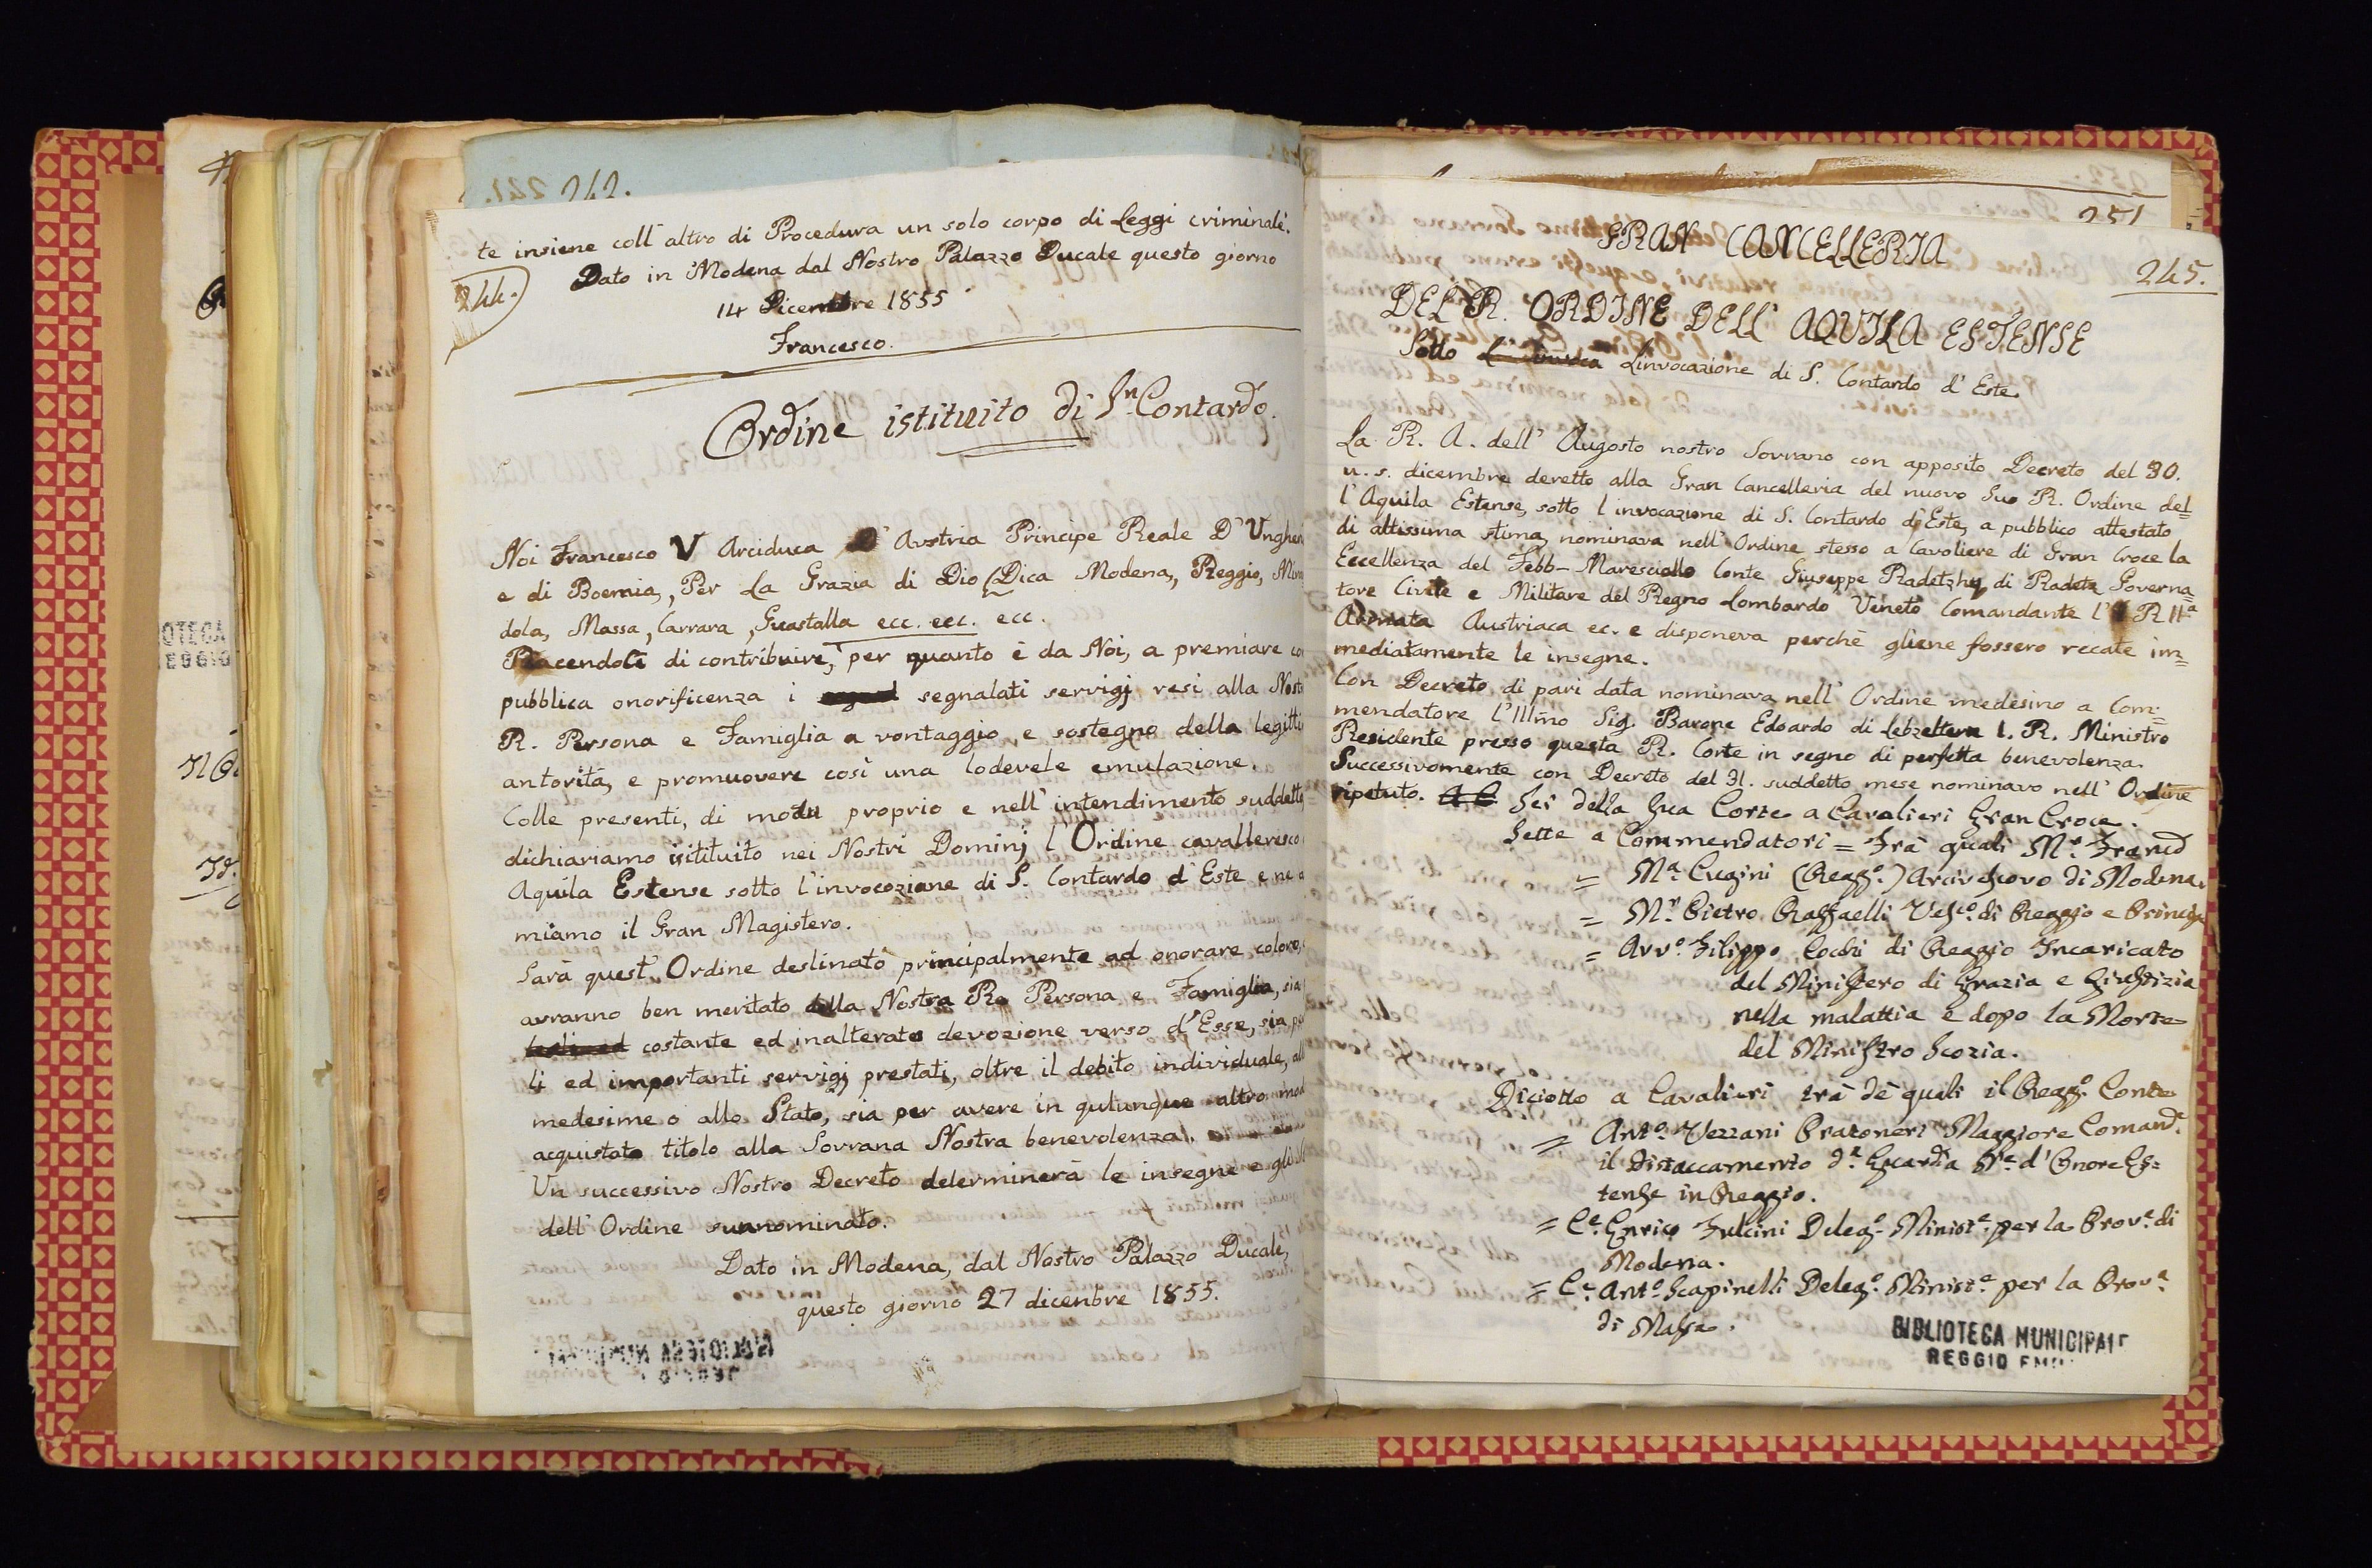 242.
te insiene coll' altro di Procedura un solo corpo di Leggi criminali.
244.
Dato in Modena dal Nostro Palazzo Ducale questo giorno
14 Dicembre 1855
Francesco.
Ordine istituito di Sn Contardo.
Noi Francesco V Arciduca D' Avstria Principe Reale D' Ungheri
e di Boemia, Per La Grazia di Dio (Dica Modena, Reggio, Mira
dola, Massa, Carrara, Guastalla ecc. ecc. ecc.
Piacendoci di contribuire, per quanto è da Noi, a premiare co
pubblica onorificenza i segnalati servigj resi alla Nostr
R. Persona e Famiglia a vontaggio e sostegno della legitti
antorità, e promuovere così una lodevele emulazione.
Colle presenti, di motu proprio e nell' intendimento suddetto
dichiariamo isitituito nei Nostri Dominj l'Oridine cavalleresco
Aquila Estense sotto l'invocozione di S. Contardo d'Este e ne a
miamo il Gran Magistero.
Sarà quest' Ordine deslinato principalmente ad onorare coloro,
avranno ben meritato della Nostra Re Persona e Famiglia, sia
costante ed inalterata devozione verso d'Esse, sia per
li ed importanti servigj prestati, oltre il debito individuale, all
medesime o allo Stato, sia per avere in qulunque altro mod
acquistato titolo alla Sovrana Nostra benevolenza.
Un successivo Nostro Decreto delerminerà le insegne e gli
dell' Ordine sunnominato.
Dato in Modena, dal Nostro Palazzo Ducale,
questo giorno 27 dicenbre 1855.
251
GRAN CANCELLERIA
245.
DEL R. ORDINE DELL' AQUILA ESTENSE
Sotto Linvocazione di S. Contardo d' Este
La R. A. dell' Augosto nostro Sovrano con apposito Decreto del 30.
u. s. dicembre deretto alla Gran Cancelleria del nuovo Suo R. Ordine del=
l'Aquila Estense, sotto l invocazione di S. Contardo d'Este, a pubblico attestato
di altissima stima, nominava nell' Ordine stesso a Cavoliere di Gran Croce la
Eccellenza del Febb-Maresciallo Conte Giuseppe Radetzhy di Radetz Governa=
tore Civile e Militare del Regno Lombardo Veneto Comandante l' I R IIa
Armata Austriaca ec. e disponeva perchè gliene fossero recate im=
mediatamente le insegne.
Con Decreto di pari data nominava nell' Ordine medesino a Com=
mendatore l'Illmo Sig. Barone Edoardo di Lebzeltern I. R. Ministro
Residente presso questa R. Corte in segno di perfetta benevolenza.
Successivomente con Decreto del 31. suddetto mese nominavo nell' Ordine
ripetuto. Sei della Sua Corte a Cavalieri Gran Croce.
Sette a Commendatori = Frà quali Mr. Francd
= Ma. Cugini (Reagg.o) Arcivescovo di Modena.
= Mr. Pietro Raffaelli Vesco. di Reggio e Principe
= Avvo. Filippo Cochi di Reggio Incaricato
del Ministero di Grazia e Giustizia
nella malattia e dopo la Morte
del Ministro Scozia.
Diciotto a Cavalieri trà dè quali il Reagg.o Conte
= Anto. Vezzani Pratoneri Maggiore Comand.e
il Distaccamento d.a Guardia N.e d'Onore Es=
tense in Reggio.
= Ce. Enrico Fulcini Delego. Ministe. per la Prova. di
Modena.
= Ce. Anto. Scapinelli Delego. Ministe. per la Prova.
di Massa.
BIBLIOTECA MUNICIPALE
REGGIO EMI